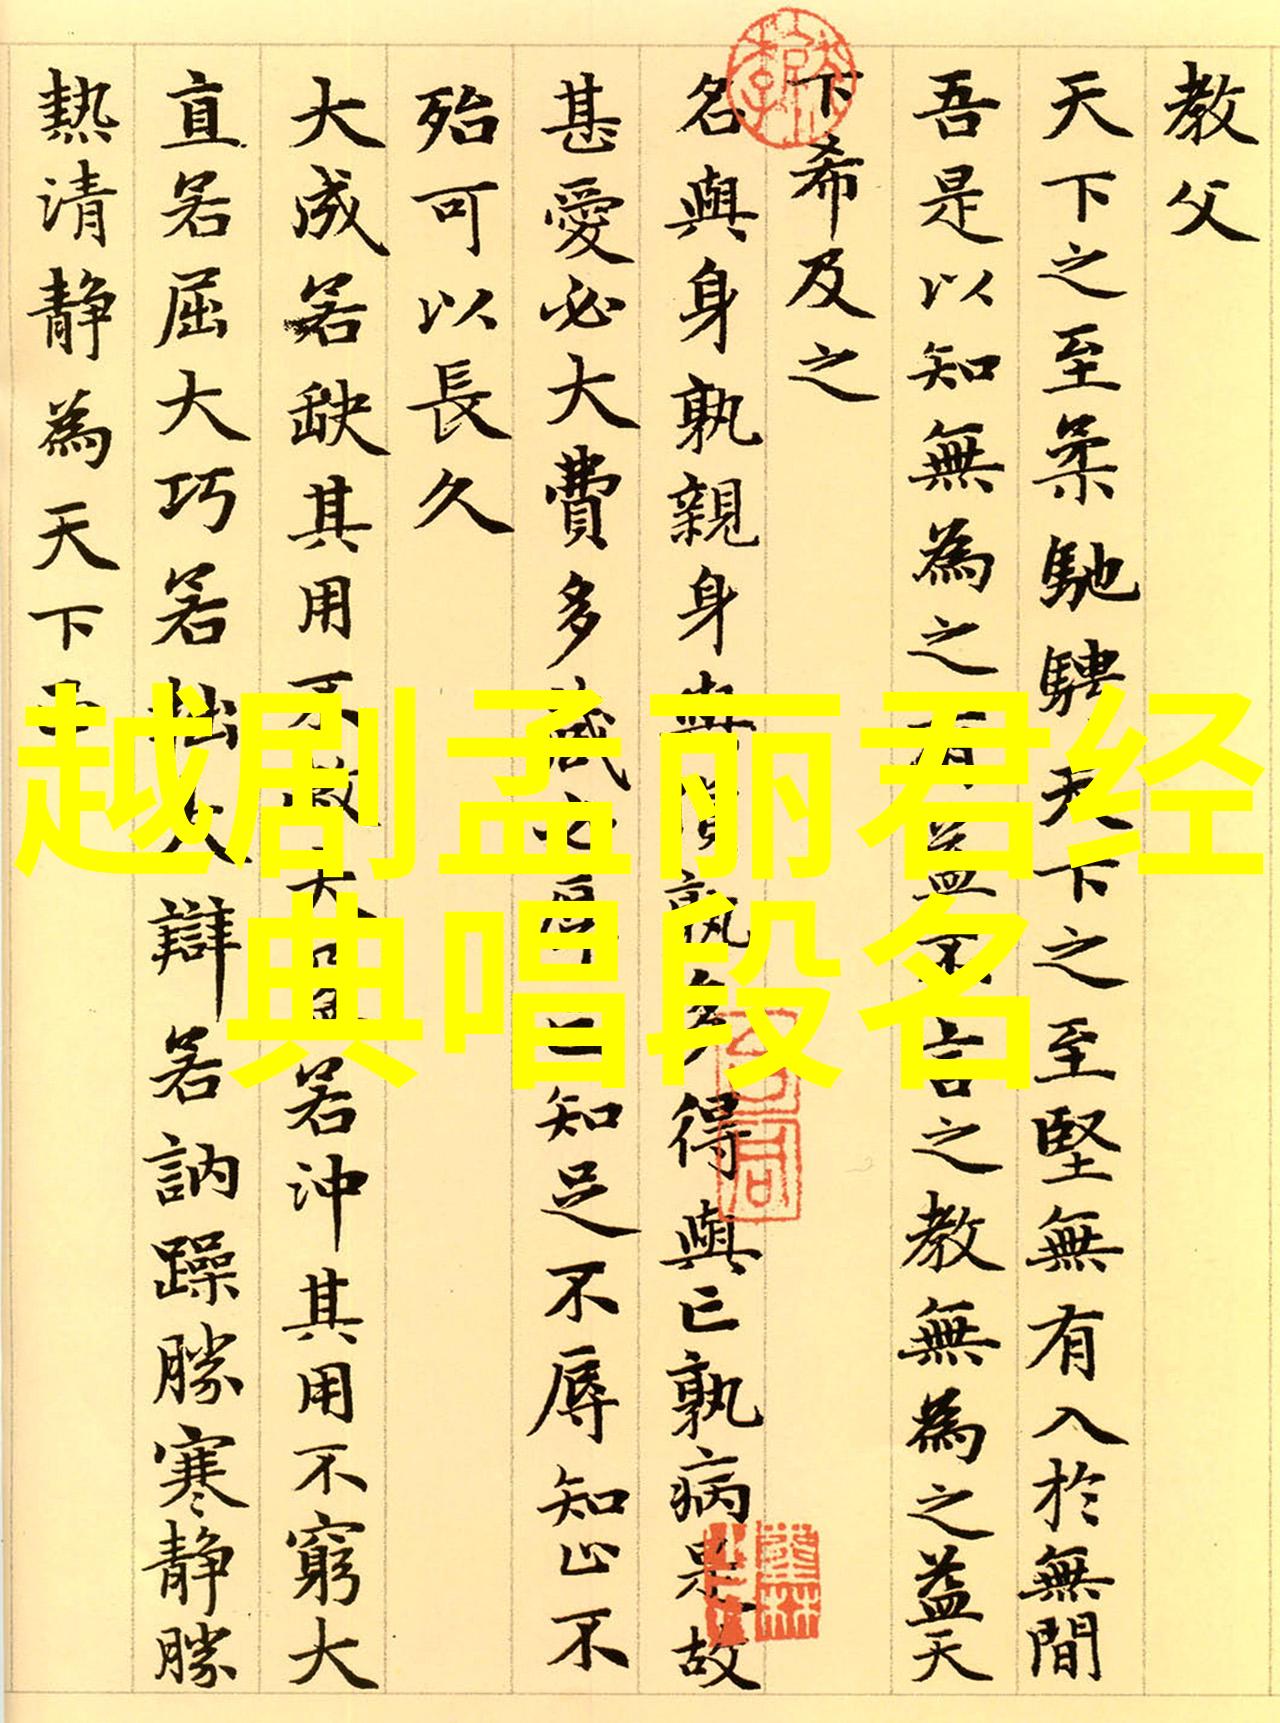 越剧孟丽君经
典唱段名
教父
天下之至柔馳騁天下之至堅無有入於無間
吾是以知無為之有益不言之教無為之益天
下希及之
名與身孰親身與貨孰多得與亡孰病是故
甚愛必大費多藏必厚亡知足不辱知止不
殆可以長久
大成若缺其用不敝大盈若沖其用不窮大
直若屈大巧若拙大辯若訥躁勝寒静勝
熱清静為天下正